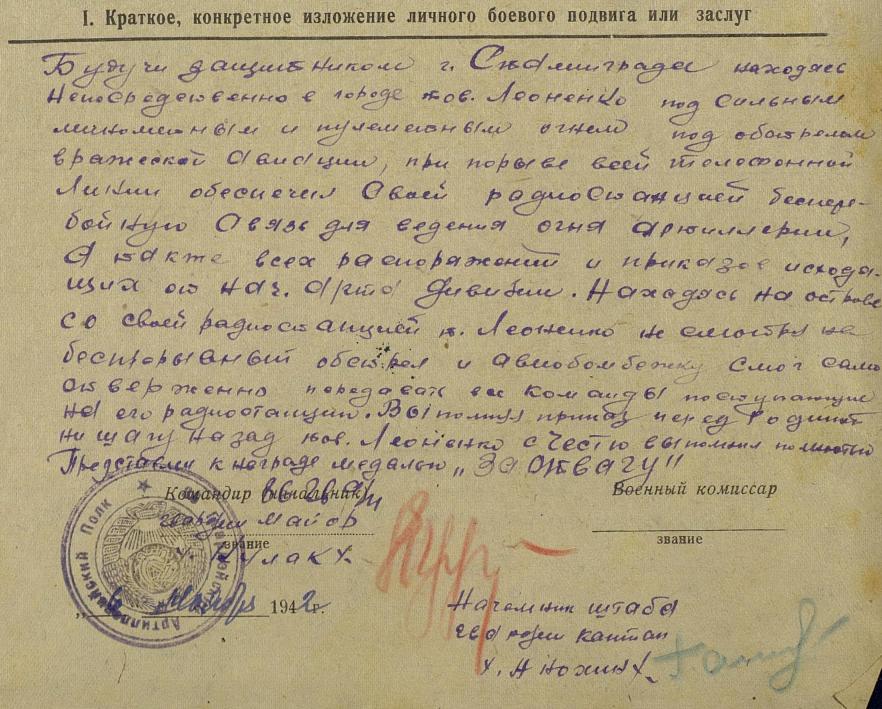 I. Краткое, конкретное изложение личного боевого подвига или заслуг
Будучи защитником г. Сталинграда находясь
Непосредственно в городе тов. Леоненко под сильным
минометным и пулеметным огнем под обстрелом
вражеской авиации, при порыве всей телефонной
Линии обеспечил Своей радиостанцией беспере-
бойную Связь для ведения огня артиллерии,
А также всех распоряжений и приказов исходя-
щих от Нач. Арта Дивизии. Находясь на острове
со своей радиостанцией т. Леоненко не смотря на
беспрерывный обстрел и авиобомбежку смог само
отверженно передавать все команды поступающие
на его радиостанцию. Выполняя приказ перед Родиной
ни шагу назад тов. Леоненко с Честью выполнил полностью
Представлен к награде медалью „ЗА ОТВАГУ"
Командир (начальник)
Военный комиссар
гвардии Майор
звание
звание
1942г.
Начальник штаба
гвардии капитан
Артиллерийский Полк